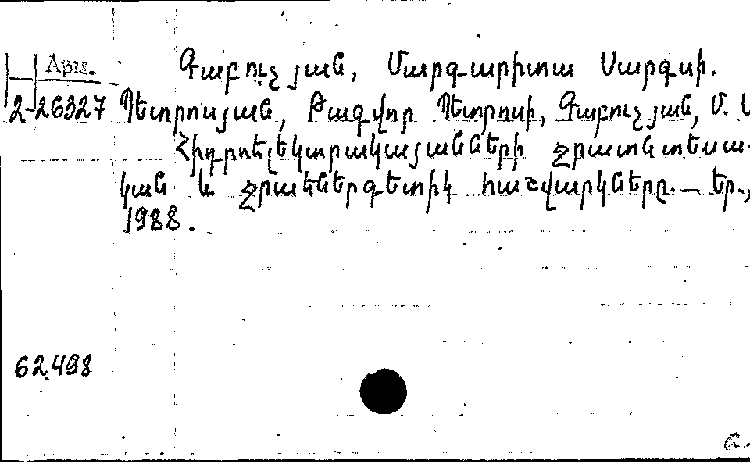 Арм. Գաբուչյան, Մարգարիտա Սարգսի.
2-26327 Պետրոսյան, Թագվոր Պետրոսի, Գաբուչյան, Մ. Ս
Հիդրոէլեկտրակայանների ջրատնտեսա-
կան և ջրաէներգետիկ հաշվարկները.— Եր.,
1988.
62.498